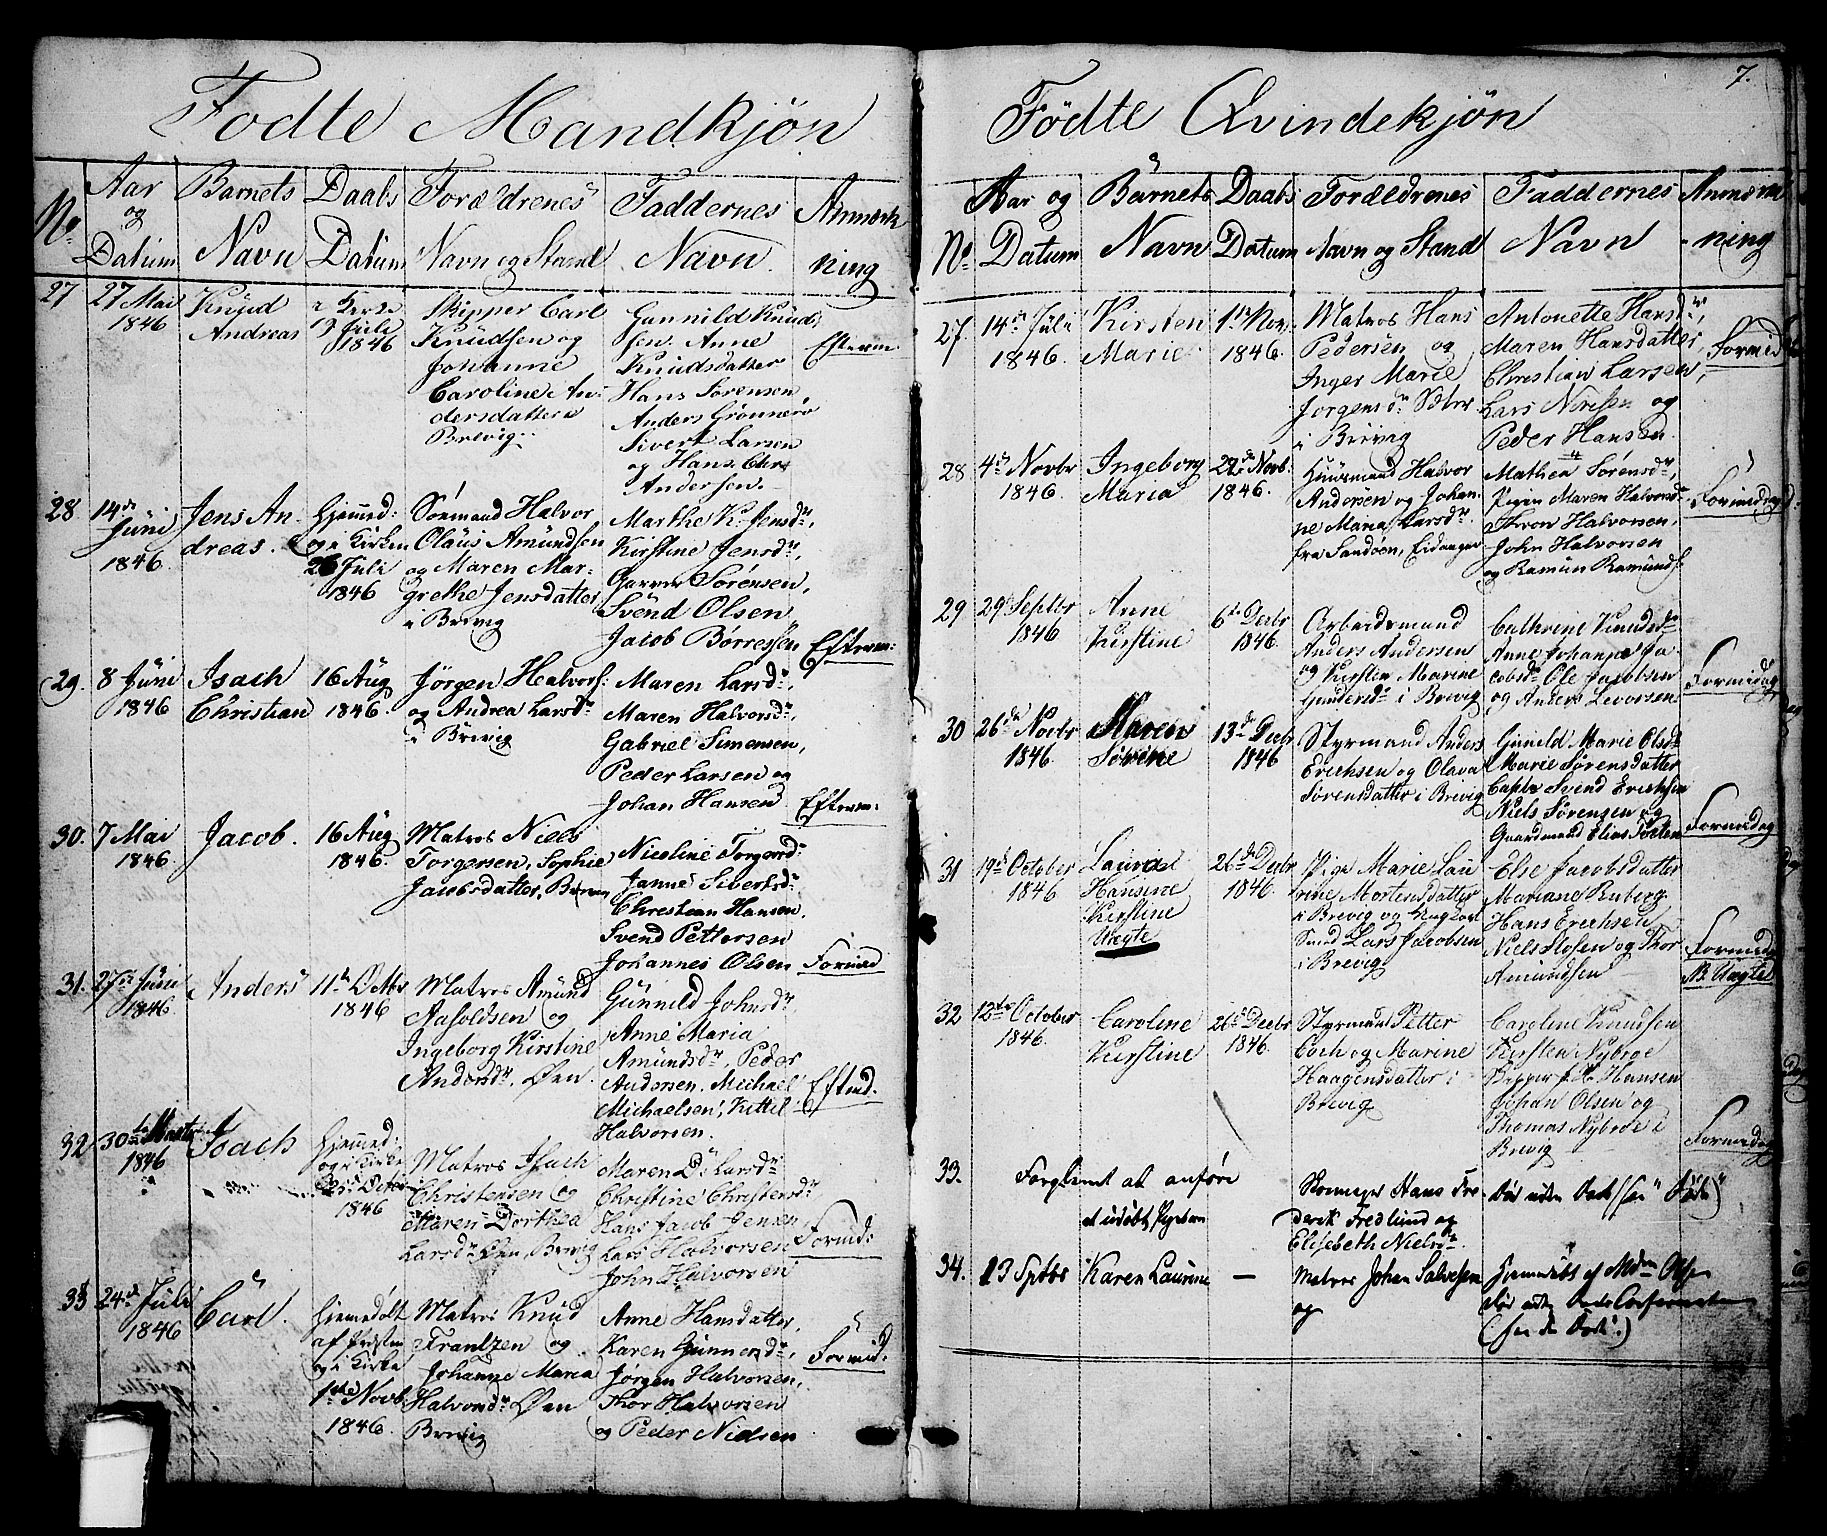 Fodte Mandkjön
No
Aar og Datum
Barnets Navn
Daabs Datum
Forældrenes Navn og Stand
Faddernes Navn
Anmærkning
27
27 Mai
1846
Knud
Andreas
i Kirke
19 Juli
1846
Skipper Carl
Knudsen og
Johanne
Caroline An-
dersdatter i
Brevig
Gunnild Knud-
sen. Anne
Knudsdatter
Hans Sörensen
Anders Grönnerö
Sivert Larsen
og Hans Chr.
Andersen.
Efterm
28
14de
Juni
1846
Jens An-
dreas.
Hjemmed:
og i Kirken
26 Juli
1846
Sömand Halvor
Olaus Amundsen
og Maren Mar-
grethe Jensdatter
i Brevig
Marthe K. Jensdr,
Kirstine Jensdr,
Sörensen,
Svend Olsen
Jacob Börresen
Efterm:
29.
8 Juni
1846
Isach
Christian
16 Aug
1846.
Jörgen Halvors:
og Andrea Larsdr
i Brevig
Maren Larsdr,
Maren Halvorsdr,
Gabriel Simensen,
Peder Larsen og
Johan Hansen
Efterm:
30.
7 Mai
1846.
Jacob.
16 Aug
1846.
Matros Niels
Torgersen, Sophie
Jacobsdatter, Brevig
Nicoline Torgersd:
Janne Sivertsdr,
Christian Hansen,
Svend Pettersen
Johannes Olsen
Formid
31.
27de Juni
1846.
Anders
11te Octbr
1846
Matros Amund
Aasoldsen og
Ingeborg Kirstine
Andersdr, Øen
Gunnild Johnsdr
Anne Maria
Amundsdr, Peder
Andersen, Michael
Michaelsen, Kittil
Halvorsen.
Eftmd.
32
30te Marts
1846
Isach
Hjemmed:
og i Kirke
25de Octbr
1846
Matros Isach
Christensen og
Maren Dorthea
Larsdr Øen, Brevig
Maren D. Larsdr
Christine Christensdr
Hans Jacob Jensen
Lars Halvorsen
John Halvorsen
Formid:
33
24de Juli
1846
Carl.
Hjemmedöbt
af Presten
og i Kirke
1ste Novb.
1846.
Matros Knud
Frantzen og
Johanne Maria
Halvorsdr Øen
Brevig
Anne Hansdatter,
Karen Gunnersdr,
Jörgen Halvorsen,
Thor Halvorsen
og Peder Nielsen
Formid:
7.
Födte Qvindekjön
No
Aar og Datum
Barnets Navn
Daabs Datum
Forældrenes Navn og Stand
Faddernes Navn
Anmærkning
27.
14de Juli
1846.
Kirsten
Marie
1ste Nov,
1846.
Matros Hans
Pedersen og
Inger Marie
Jorgensdr
i Brevig
Antonette Hansdr,
Maren Hansdatter,
Christian Larsen,
Lars Nielsen og
Peder Hansen
Formid
28
4de Novbr
1846.
Ingeborg
Maria
22de Novb:
1846.
Huusmand Halvor
Andersen og Johan-
ne Maria Larsdr.
fra Sandøen, Eidanger
Mathea Sörensdr,
Pigen Maren Halvorsdr
Thron Halvorsen,
John Halvorsen
og Ramun Ramunds.
Formidag
29
29 Septbr
1846
Anne
Kirstine
6te Decbr
1846.
Arbeidsmand
Anders Andersen
og Kirstin Marine
Gundersdr i Brevig
Cathrine Knudsdr
Anne Johanne Ja-
cobsdr Ole Jacobsen
og Anders Levorsen
Formidag
30
26de Novbr
1846.
Maren
Sörine
13de Decbr
1846
Styrmand Anders
Erichsen og Olava
Sörensdatter i Brevig
Gunild Marie Olsdr
Marie Sörensdatter
Captn Svend Erichsen
Niels Sörensen og
Gaardmand Elias Tosten
Formidag
31
19de October
1846
Laura
Hansine
Kirstine
Uægte
26de Decbr
1846.
Pige Marie Lau-
rine Mortensdatter
i Brevig og Ungkarl
Smed Lars Jacobsen
i Brevig
Else Jacobsdatter
Mariane Ruberg
Hans Erichsen
Niels Olsen og Thor
Amundsen
Formidag
NB Uægte
32
12te October
1846.
Caroline
Kirstine
26de Decbr
1846.
Styrmand Petter
Coch og Marine
Haagensdatter i
Brevig
Caroline Knudsen
Kirsten Nybroe
Skipper J. H. Hansen
Johan Olsen og
Thomas Nybroe i
Brevig
Formidag
33.
Forglemt at anføre
et udöbt Pigebarn
Skomager Hans Fre-
derik Fredlund og
Elisebeth Nielsdr.
Död uden Daab (see "Döde")
34.
13 Septbr
Karen Laurine
—
Matros Johan Salvesen
og
Hjemmedöbt af Madm Olsen
död uden Daabs Confirmation
(see de Döde.)